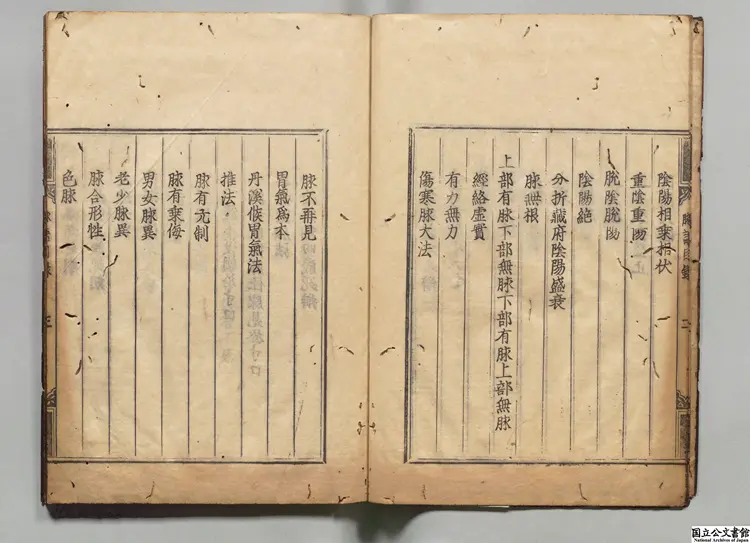 陰陽相乘相伏
重陰重陽
脫陰脫陽
陰陽絶
分折藏府陰陽盛衰
脉無根
上部有脉下部無脉下部有脉上部無脉
經絡虛實
有力無力
傷寒脉大法
脉不再見
胃氣爲本
丹溪候胃氣法
推法
脉有亢制
脉有乘侮
男女脉異
老少脉異
脉合形性
色脉
国立公文書館
National Archives of Japan